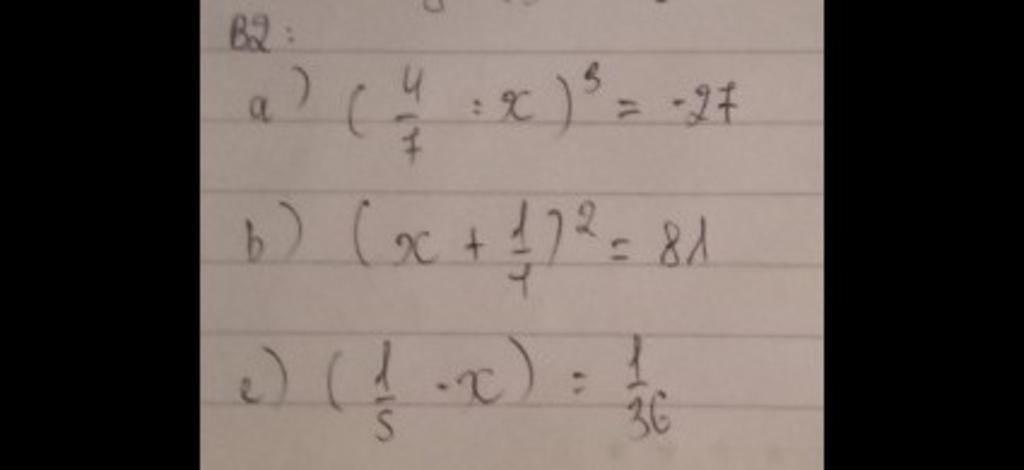 B2:
a) (4/7 : x)³ = -27
b) (x + 1/7)² = 81
c) (1/5 . x) = 1/36